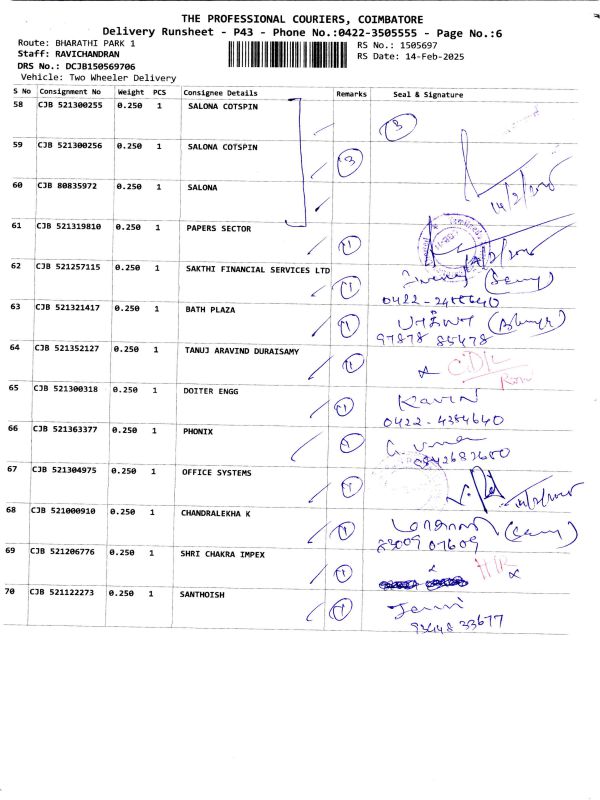 THE PROFESSIONAL COURIERS, COIMBATORE
Delivery Runsheet - P43 - Phone No.:0422-3505555 - Page No.:6
Route: BHARATHI PARK 1 RS No.: 1505697
Staff: RAVICHANDRAN RS Date: 14-Feb-2025
DRS No.: DCJB150569706
Vehicle: Two Wheeler Delivery
S No Consignment No Weight PCS Consignee Details Remarks Seal & Signature
58 CJB 521300255 0.250 1 SALONA COTSPIN 3
59 CJB 521300256 0.250 1 SALONA COTSPIN 3
60 CJB 80835972 0.250 1 SALONA 14/2/2025
61 CJB 521319810 0.250 1 PAPERS SECTOR 1
62 CJB 521257115 0.250 1 SAKTHI FINANCIAL SERVICES LTD 1
63 CJB 521321417 0.250 1 BATH PLAZA 1
97878 85478
64 CJB 521352127 0.250 1 TANUJ ARAVIND DURAISAMY 1
65 CJB 521300318 0.250 1 DOITER ENGG 1 Kavin
0422-4384640
66 CJB 521363377 0.250 1 PHONIX 1
67 CJB 521304975 0.250 1 OFFICE SYSTEMS 1
68 CJB 521000910 0.250 1 CHANDRALEKHA K 1
69 CJB 521206776 0.250 1 SHRI CHAKRA IMPEX 1
70 CJB 521122273 0.250 1 SANTHOISH 1